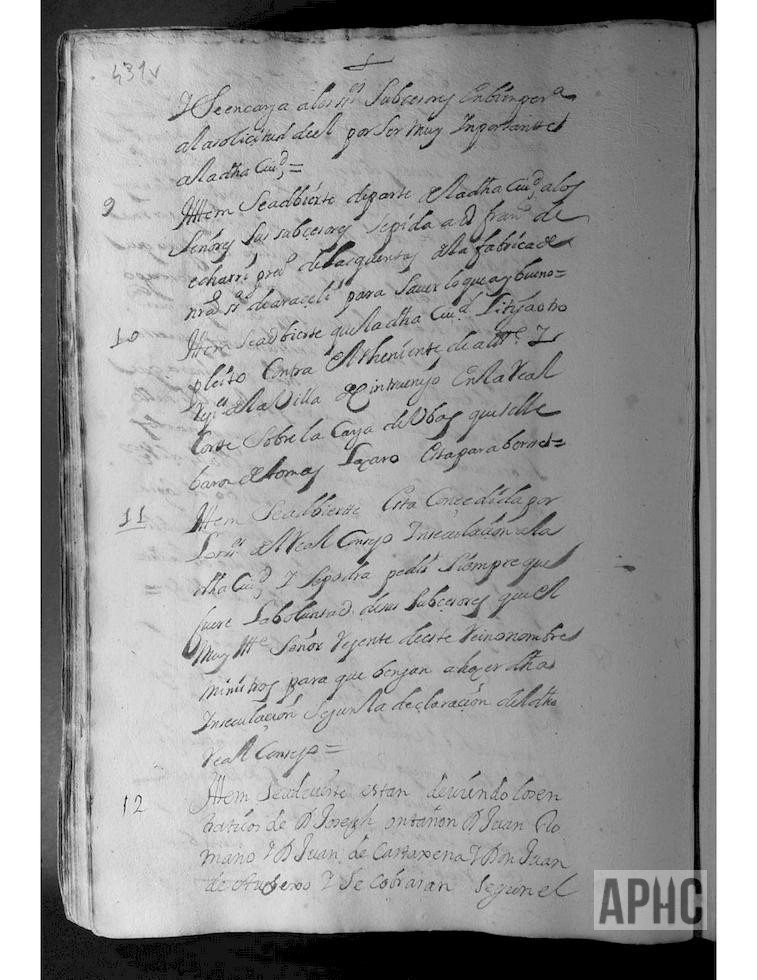 431v
Y Se encarga alos ss.es Subcesores
ala solicitud del por Ser muy Inportante
aladha Ciu.d =
9 Ittem Seadbierte departe deladha Ciu.d alos
Señores Sus subcesores Sepida a D fran.co de
echarri de las quentas dela fabrica de
nra s.ra de araçeli para Saver loque ay bueno =
10 Ittem Seadbierte que ladha Ciu.d Litiga otro
pleito Contra el theniente de
dela Villa de Cintruenijo En la Real
Corte Sobre la Carga de Ubas que selle
de tomas Lazaro Esta para
11 Ittem Seadbierte Esta Concedida por
del Real Consejo Inseculacion ala
dha Ciu.d Y Sepodra pedir Siempre que
fuere La boluntad de sus Subcesores que El
Muy Ill.e Señor Rejente de este Reino nombre
ministros para que bengan a hazer dha
Inseculacion Segun la declaracion del dho
Real Consejo =
12 Ittem Seadvierte estan deviendo los en
de D Joseph ontañon D Juan Ro
mano Y D Juan de Cartaxena Y Don Juan
de Y Se Cobraran Segun el
APHC